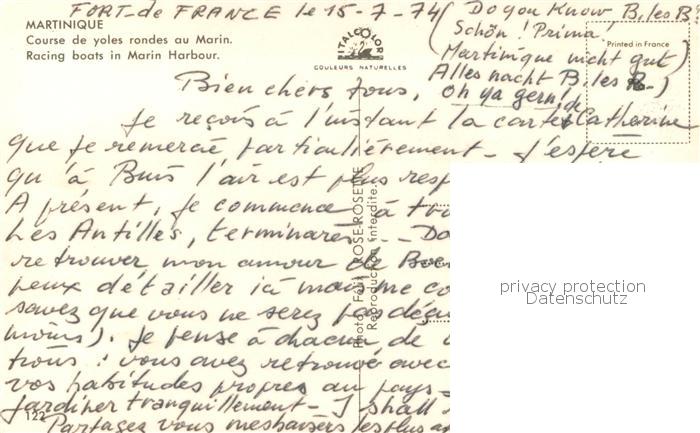 FORT-de FRANCE le 15-7-74 (Do you Know B. les B?
MARTINIQUE
Schön! Prima!
Course de yoles rondes au Marin.
Racing boats in Marin Harbour.
ITALCOLOR
COULEURS NATURELLES
Printed in France
Martinique nicht gut)
Alles nacht B. les B-)
Oh ya gern!
Bien chers tous,
Je reçois à l'instant la carte de Catherine
que je remercie particulièrement - J'espère
qu'à Buis l'air est plus resp
A présent, je commence à tro
Les Antilles, terminares - - Do
retrouver mon amour de
peux détailler ici mais me co
savez que vous ne serez pas déçu
moins). Je pense à chacun de
trous : vous avez retrouvé avec
vos habitudes propres au pays-
Jardiner tranquillement - I shall
122
Partagez vous mes baisers les plus
Photo. Edit. ROSE-ROSETTE
Reproduction interdite.
privacy protection
Datenschutz